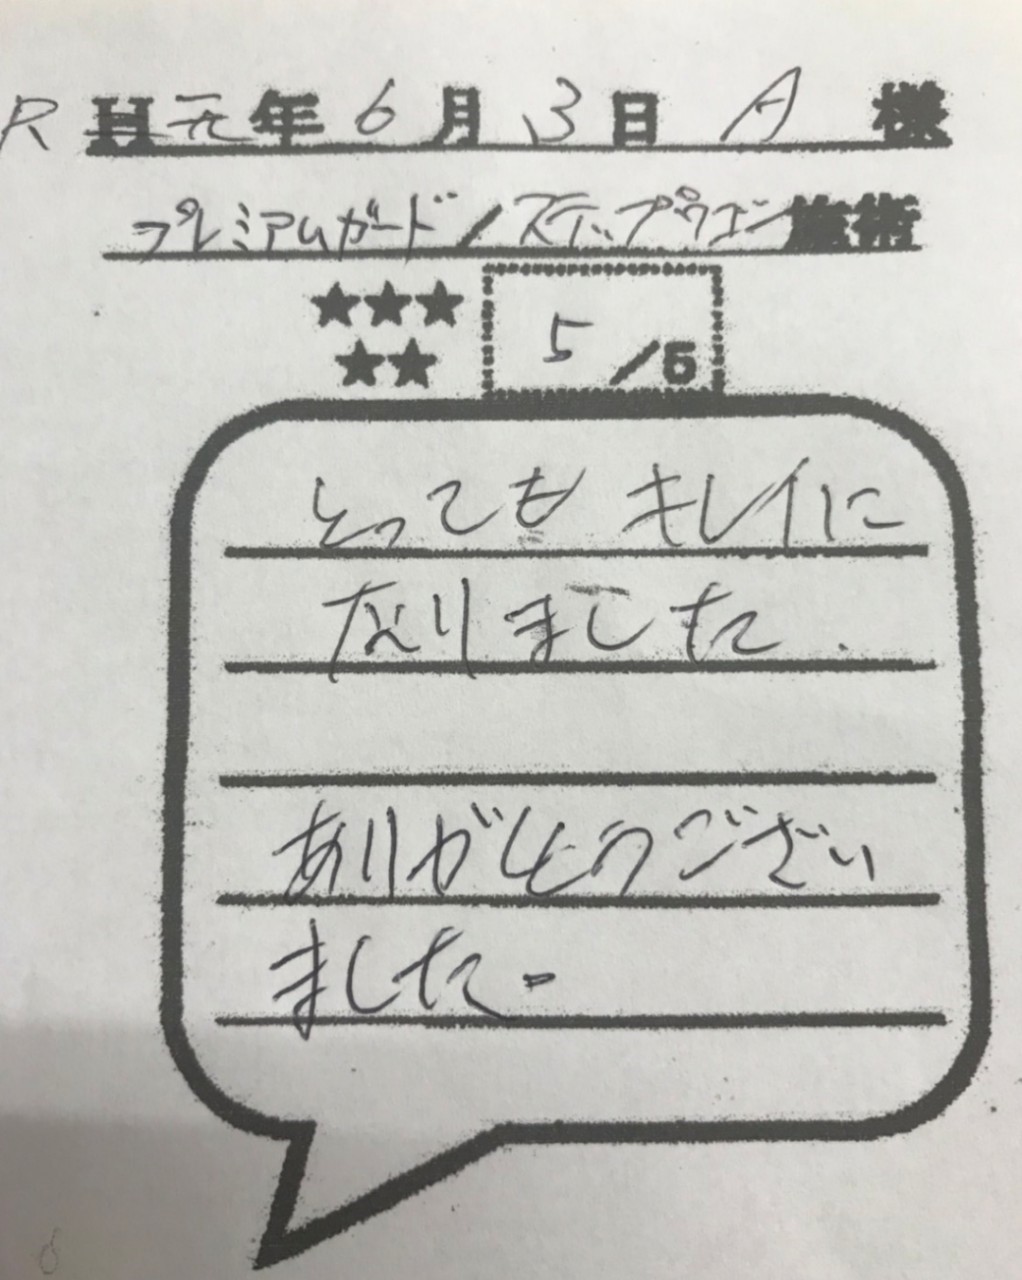 R H元年 6月 3日 A 様
プレミアムガード/ステップワゴン施術
★★★
★★
5/5
とってもキレイに
なりました.
ありがとうござい
ました。